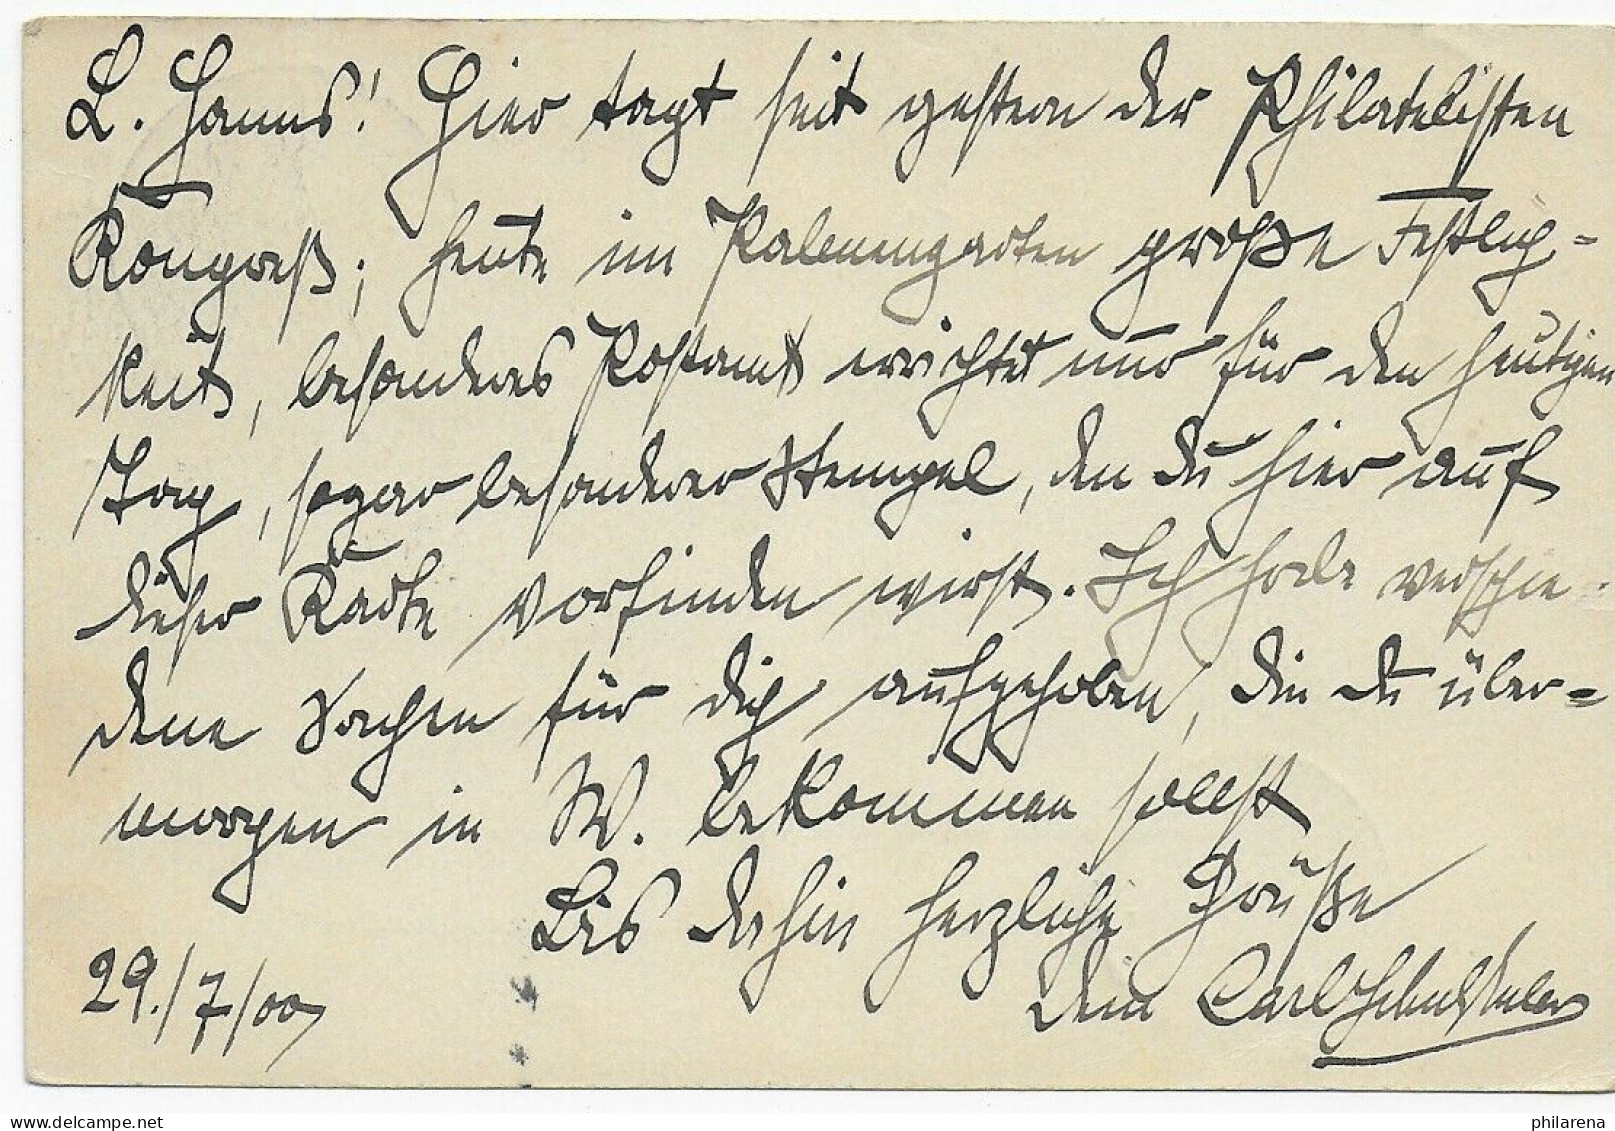 L. Hanns! Hier tagt seit gestern der Philatelisten
Kongreß; heute im Palmengarten große Festlich=
keit, besonderes Postamt errichtet nur für den heutigen
Tag, sogar besonderer Stempel, den Du hier auf
dieser Karte vorfinden wirst. Ich habe verschie-
dene Sachen für dich aufgehoben, die Du über=
morgen in W. bekommen sollst
Bis dahin herzliche Grüße
Dein Carl
29./7/00
philarena